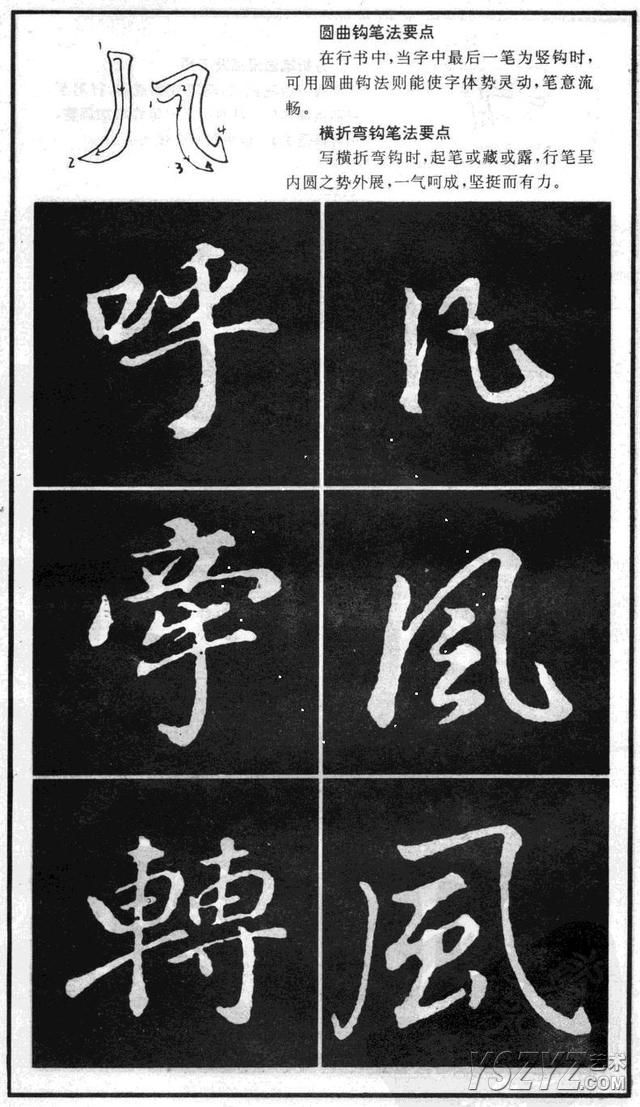 圆曲钩笔法要点
在行书中，当字中最后一笔为竖钩时，
可用圆曲钩法则能使字体势灵动，笔意流
畅。
横折弯钩笔法要点
写横折弯钩时，起笔或藏或露，行笔呈
内圆之势外展，一气呵成，坚挺而有力。
1
2
1
2
3
4
呼
凡
風
轉
風
YSZYZ艺术
.COM